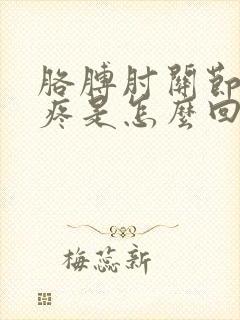 胳膊肘關節
疼是怎麼回
梅蕊新